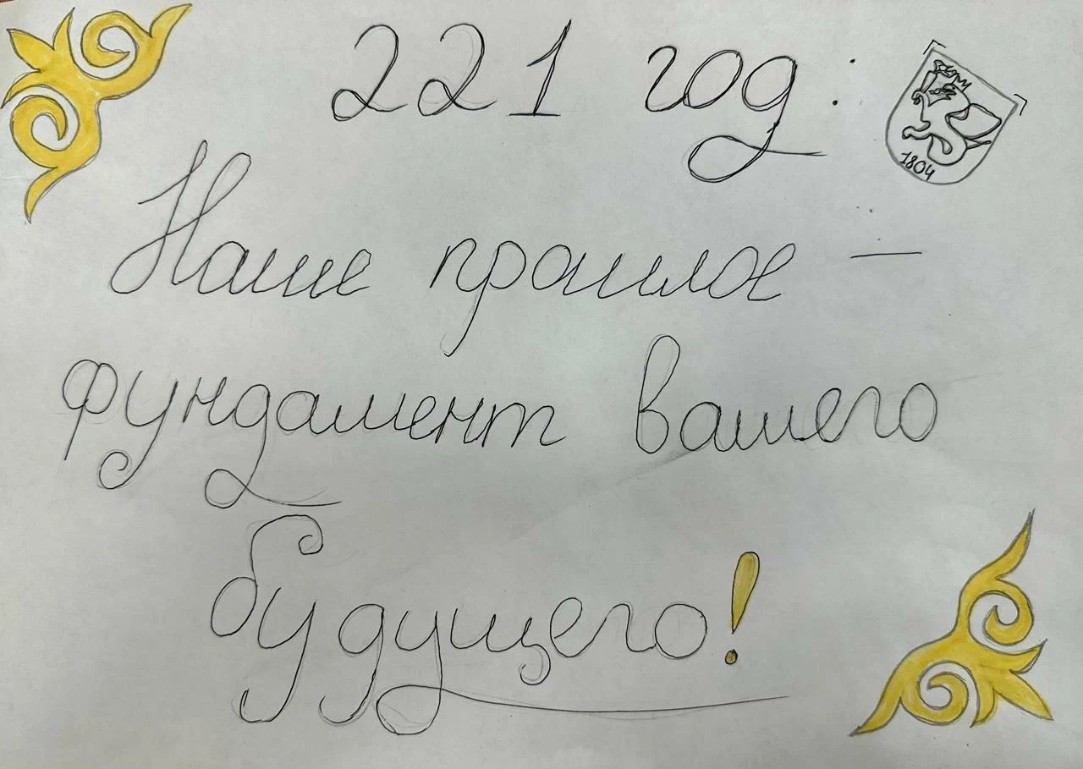 221 год:
1804
Наше прошлое –
фундамент вашего
будущего!